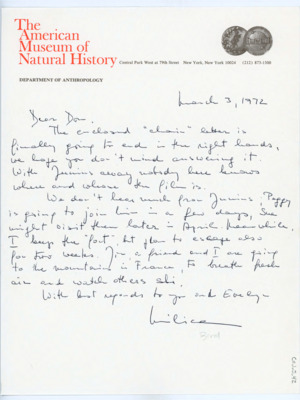 The
American
Museum of
Natural History Central Park West at 79th Street New York, New York 10024 (212) 873-1300
DEPARTMENT OF ANTHROPOLOGY
March 3, 1972
Dear Don.
The enclosed "chain" letter is
finally going to end in the right hands,
we hope you don't mind answering it.
With Junius away nobody here knows
where and whose the film is.
We don't hear much from Junius, Peggy
is going to join him in a few days, she
might visit them later in April. Meanwhile
I keep the "fort" but plan to escape also
for two weeks. I'm a friend and I are going
to the mountains in France, to breath fresh
air and watch others ski.
With best regards to you and Evelyn
Milica
Bird